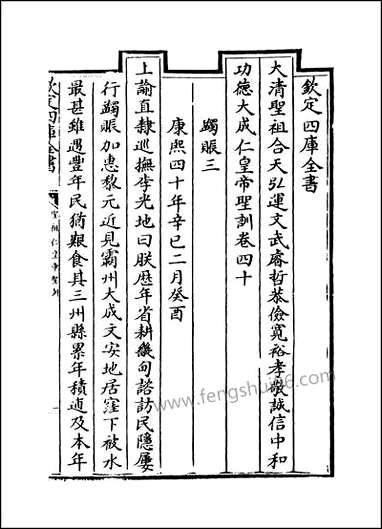 欽定四庫全書
大清聖祖合天弘運文武睿哲恭儉寬裕孝敬誠信中和
功德大成仁皇帝聖訓卷四十
蠲賑三
康熙四十年辛巳二月癸酉
上諭直隸巡撫李光地曰朕歷年省耕畿甸諮訪民隱屢
行蠲賑加惠黎元近見霸州大成文安地居窪下被水
最甚雖遇豐年民猶艱食其三州縣累年積逋及本年
欽定四庫全書
聖祖仁皇帝聖訓
一
www.fengshui86.com